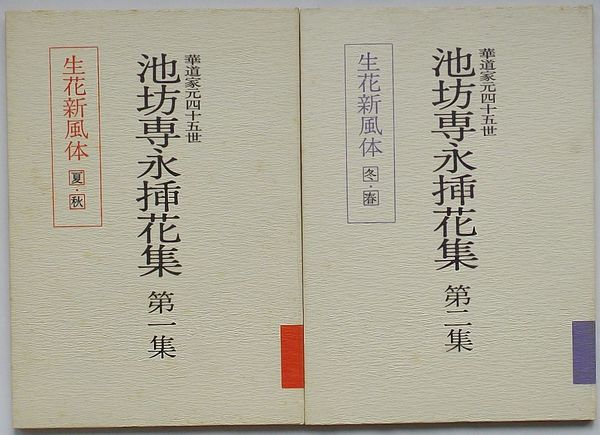 華道家元四十五世
池坊専永挿花集 第一集
生花新風体 夏・秋
華道家元四十五世
池坊専永挿花集 第二集
生花新風体 冬・春